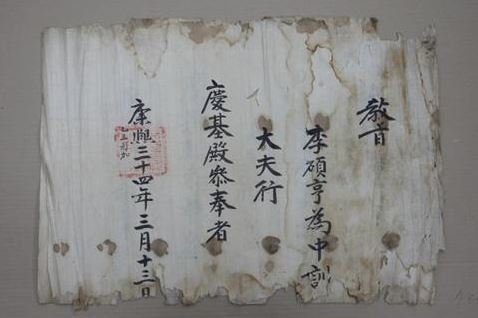 敎旨
李碩亨為中訓
大夫行
慶基殿叅奉者
康熙三十四年三月十三日